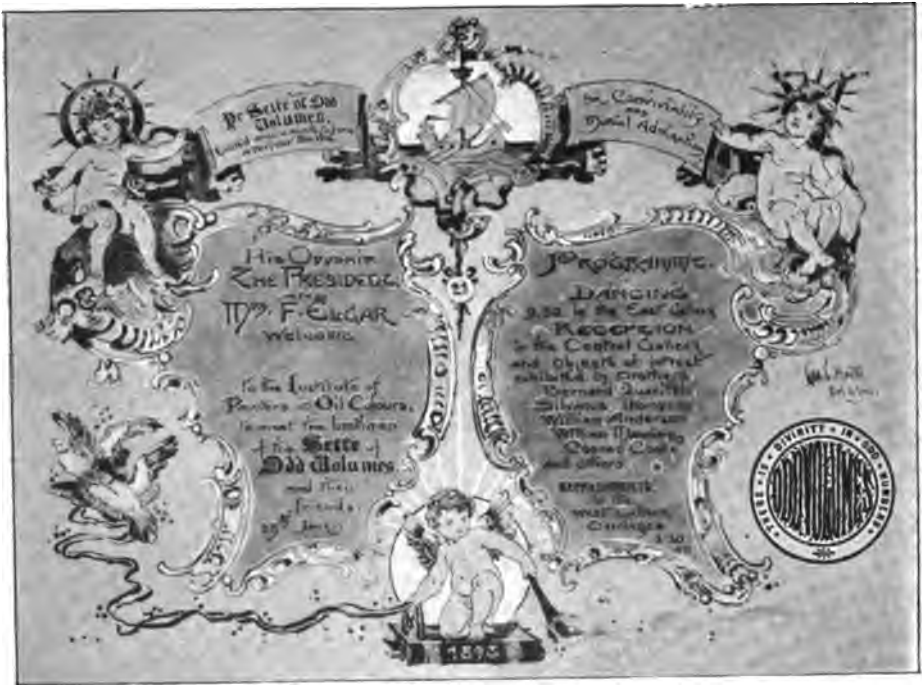 Ye Sette of Odd
Volumes.
for Conviviality
and
Mutual Admiration
His Oddship
The President,
& Mrs. F. Elgar
Welcome
to the Institute of
Painters in Oil Colours,
to meet the
of the Sette of
Odd Volumes
and their
friends
Programme.
Dancing
9.30 in the East Gallery
Reception
in the Central Gallery
and Objects of interest
exhibited by Brothers
Bernard Quaritch
Silvanus Thompson
William Anderson
William Manning
Conrad Cooke
and others
Refreshments
in the
West Gallery
Carriages
1895
THERE • IS • DIVINITY • IN • ODD • NUMBERS
ODD VOLUMES